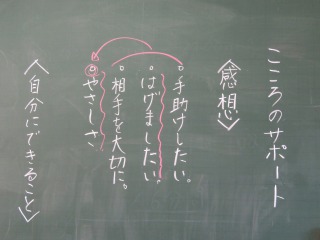 こころのサポート
〈感想〉
・手助けしたい。
・はげましたい。
・相手を大切に。
・やさしさ
〈自分にできること〉